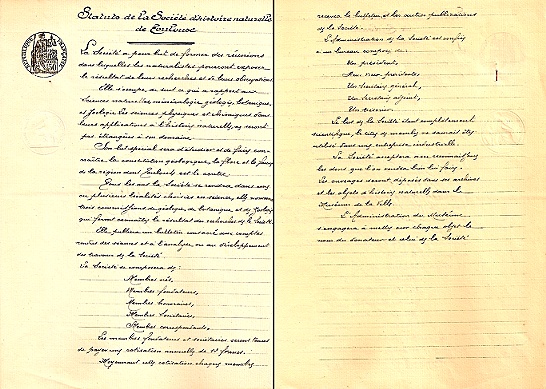 Statuts de la Société d'histoire naturelle
de Toulouse
La Société a pour but de former des réunions
dans lesquelles les naturalistes pourront exposer
le résultat de leurs recherches et de leurs observations
Elle s'occupe de tout ce qui a rapport aux
sciences naturelles, minéralogie, géologie, botanique,
et zoologie. Les sciences physiques et chimiques dans
leurs applications à l'histoire naturelle, ne seront
pas étrangères à son domaine.
Son but spécial sera d'étudier et de faire con-
naître la constitution géologique, la flore et la faune
de la région dont Toulouse est le centre.
Tous les ans la Société se rendra dans une
ou plusieurs localités choisies en séance, elle nommera
trois commissions de géologie, de botanique, et de zoologie
qui feront connaître le résultat des recherches de la Société.
Elle publiera un bulletin consacré aux comptes
rendus des séances et à l'analyse ou au développement
des travaux de la Société.
La Société se composera de:
Membres nés,
Membres fondateurs,
Membres honoraires,
Membres titulaires,
Membres correspondants.
Les membres fondateurs et titulaires seront tenus
de payer une cotisation annuelle de 12 francs.
Moyennant cette cotisation chaque membre
recevra le bulletin et les autres publications
de la Société.
L'Administration de la Société est confiée
à un bureau composé de:
Un président,
Deux vice-présidents,
Un Secrétaire général,
Un Secrétaire adjoint,
Un trésorier.
Le but de la Société étant complètement
scientifique, le titre de membre ne saurait être
utilisé dans une entreprise industrielle.
La Société acceptera avec reconnaissance
les dons que l'on voudra bien lui faire.
Les ouvrages seront déposés dans ses archives
et les objets d'histoire naturelle dans le
Muséum de la Ville.
L'Administration du Muséum
s'engagera à mettre sur chaque objet le
nom du donateur et celui de la Société